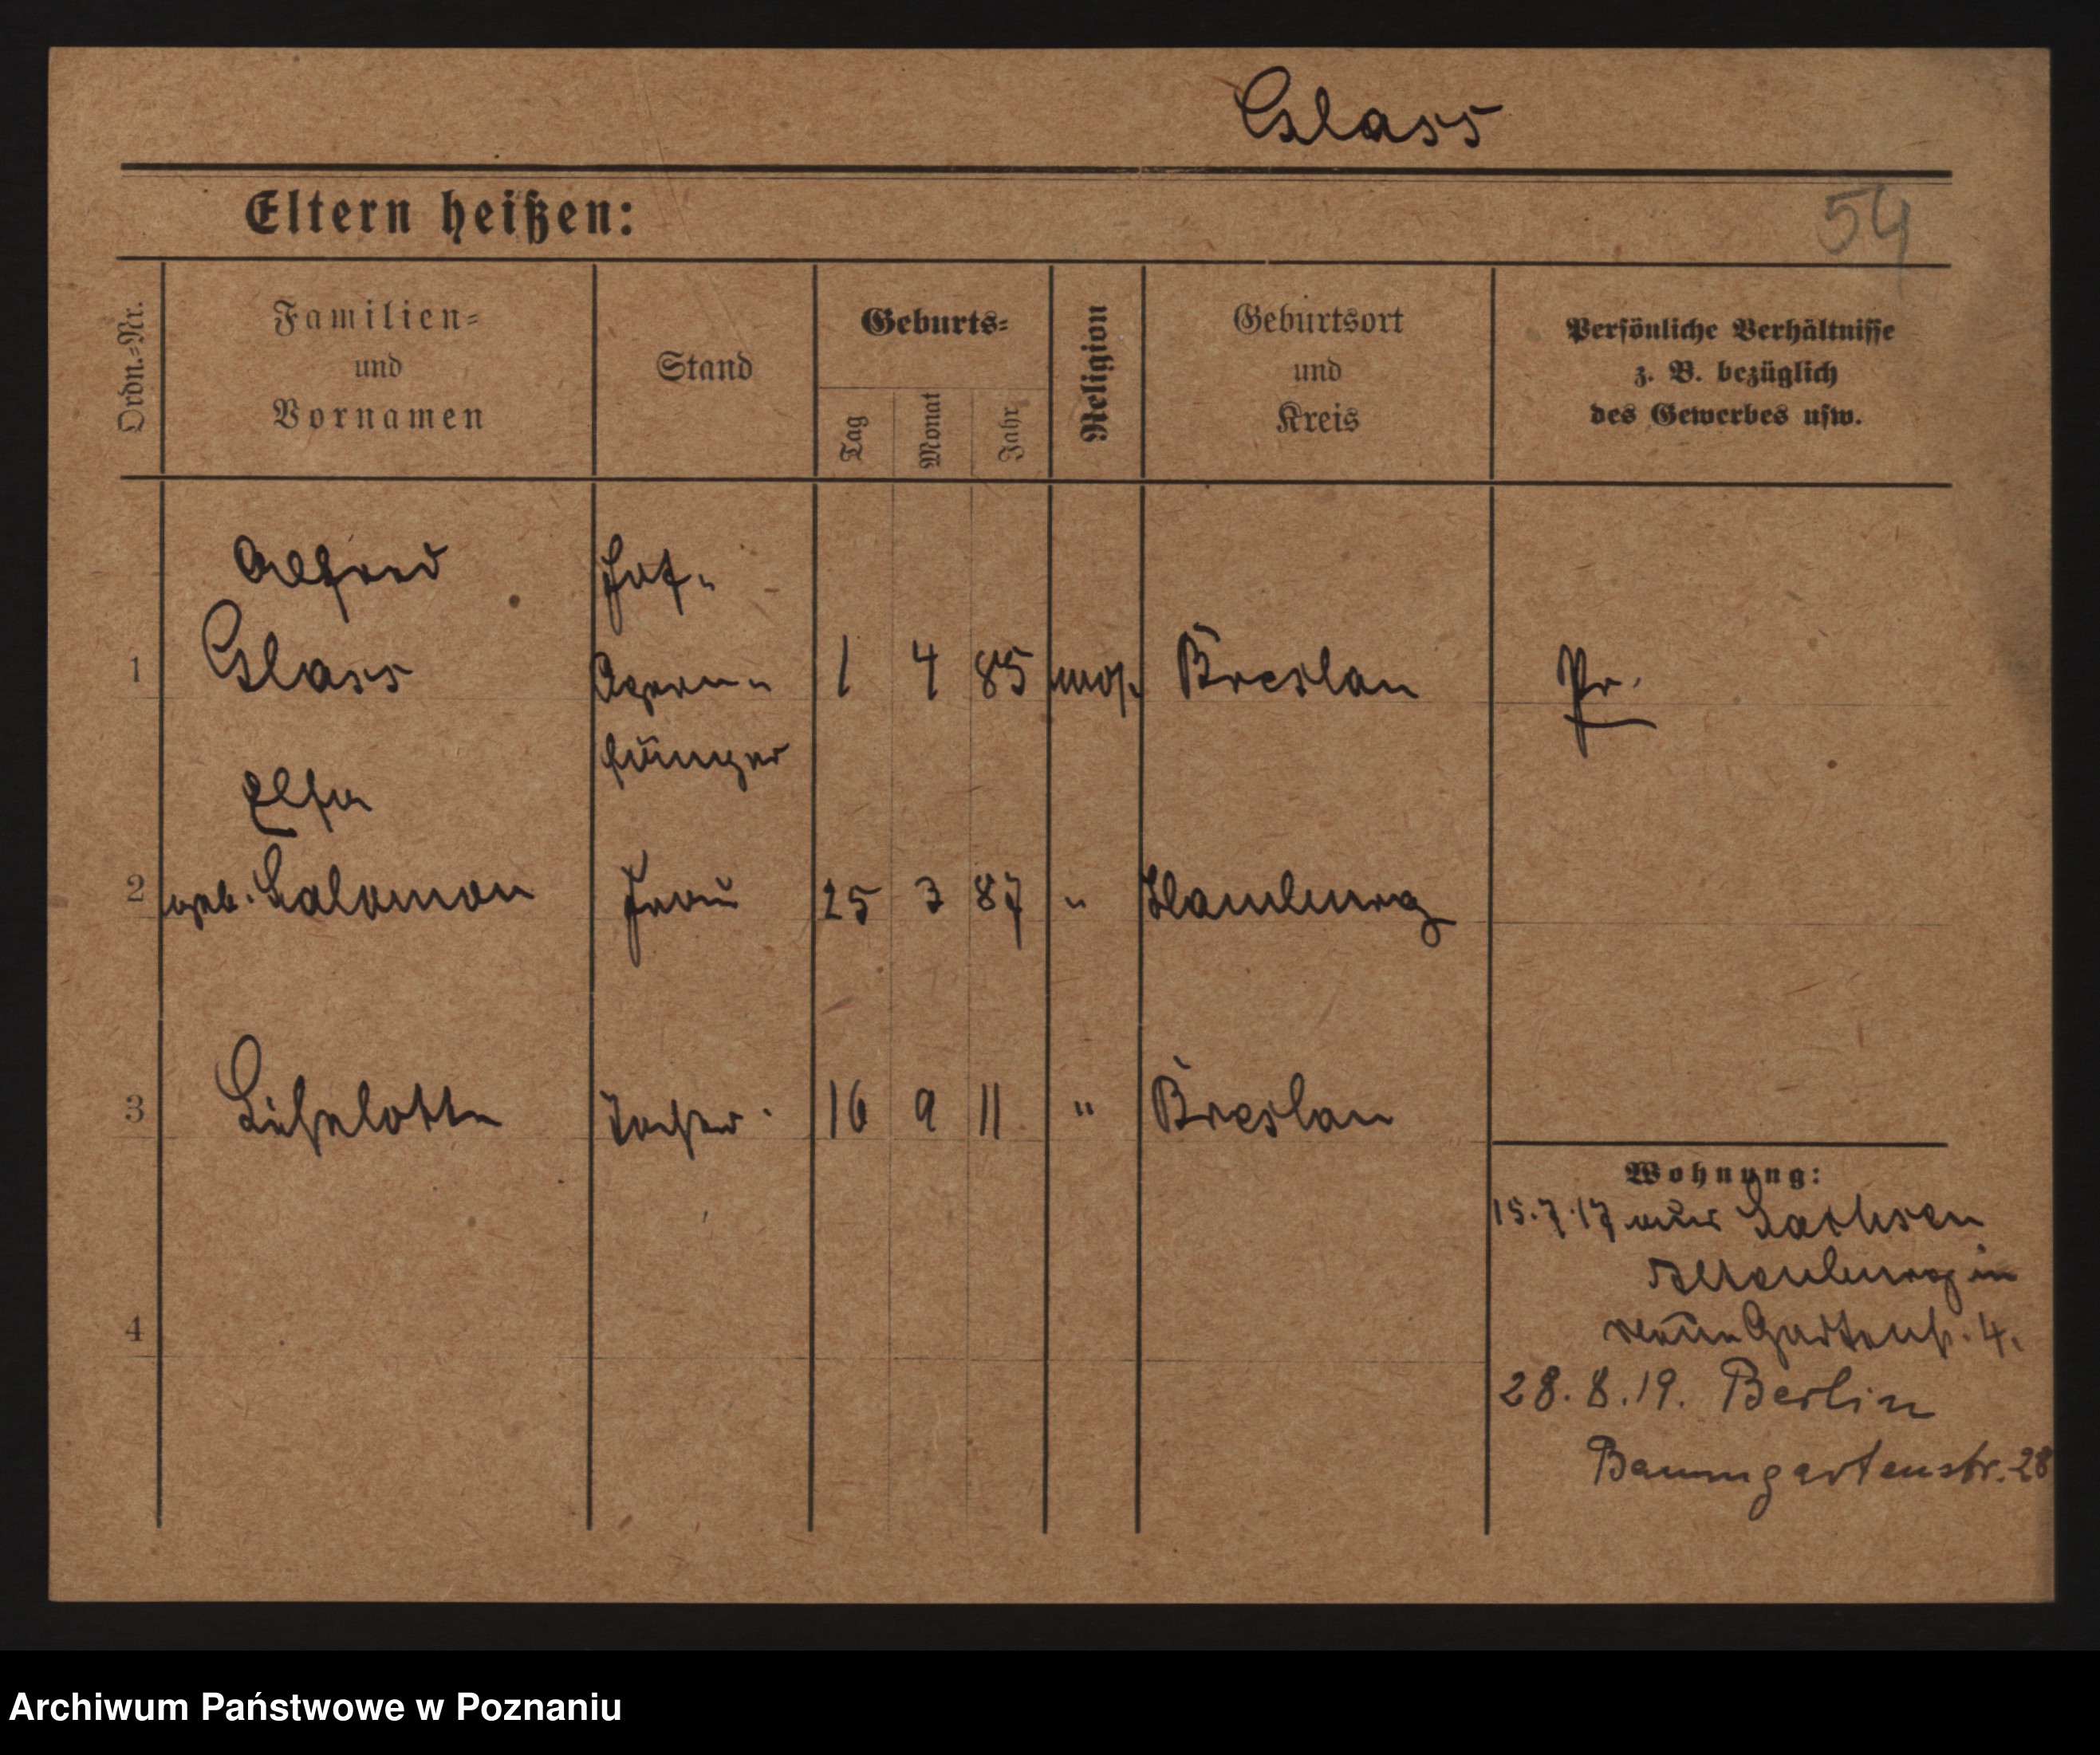 Glass
Eltern heißen:
54
Ordn.=Nr.
Familien=
und
Vornamen
Stand
Geburts=
Tag
Monat
Jahr
Religion
Geburtsort
und
Kreis
Persönliche Verhältnisse
z. B. bezüglich
des Gewerbes usw.
Alfred
Hof-
1 Glass Opern- 1 4 85 mos. Breslau Pr.
sänger
Else
2 geb. Salomon Frau 25 3 87 " Hamburg
3 Liselotte Tochter 16 9 11 " Breslau
Wohnung:
15.7.17 Sachsen
Altenburg in
Gartenstr. 4.
4
28.8.19. Berlin
Baumgartenstr. 28
Archiwum Państwowe w Poznaniu